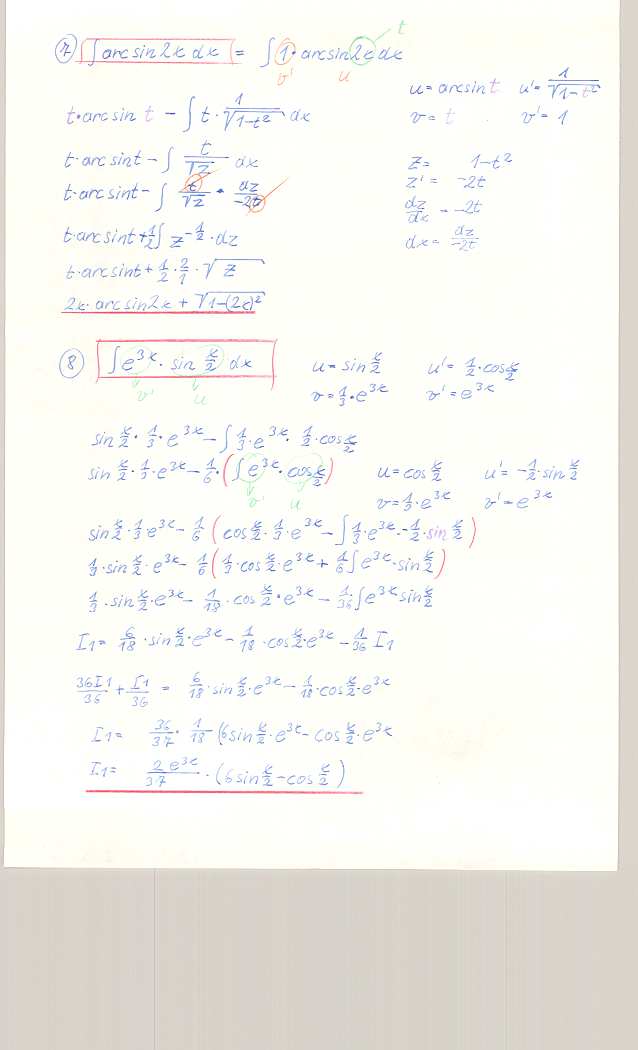 7 ∫ arcsin2x dx = ∫ 1 · arcsin2x dx
t
v' u
u = arcsin t u' = 1/√(1-t²)
t·arcsin t - ∫ t · 1/√(1-t²) dx
v = t v' = 1
t·arcsin t - ∫ t/√z dx
z = 1-t²
t·arcsin t - ∫ t/√z · dz/-2t
z' = -2t
dz/dx = -2t
t·arcsin t + 1/2 ∫ z^(-1/2) · dz
dx = dz/-2t
t·arcsin t + 1/2 · 2/1 · √z
2x·arcsin2x + √(1-(2x)²)
8 ∫ e^(3x) · sin x/2 dx
v' u
u = sin x/2 u' = 1/2 · cos x/2
v = 1/3 · e^(3x) v' = e^(3x)
sin x/2 · 1/3 · e^(3x) - ∫ 1/3 · e^(3x) · 1/2 · cos x/2
sin x/2 · 1/3 · e^(3x) - 1/6 · (∫ e^(3x) · cos x/2)
v' u
u = cos x/2 u' = -1/2 · sin x/2
v = 1/3 · e^(3x) v' = e^(3x)
sin x/2 · 1/3 e^(3x) - 1/6 (cos x/2 · 1/3 · e^(3x) - ∫ 1/3 · e^(3x) · -1/2 · sin x/2)
1/3 · sin x/2 · e^(3x) - 1/6 (1/3 · cos x/2 · e^(3x) + 1/6 ∫ e^(3x) · sin x/2)
1/3 · sin x/2 · e^(3x) - 1/18 · cos x/2 · e^(3x) - 1/36 ∫ e^(3x) sin x/2
I1 = 6/18 · sin x/2 · e^(3x) - 1/18 · cos x/2 · e^(3x) - 1/36 I1
36I1/36 + I1/36 = 6/18 · sin x/2 · e^(3x) - 1/18 · cos x/2 · e^(3x)
I1 = 36/37 · 1/18 (6 sin x/2 · e^(3x) - cos x/2 · e^(3x)
I1 = 2e^(3x)/37 · (6 sin x/2 - cos x/2)